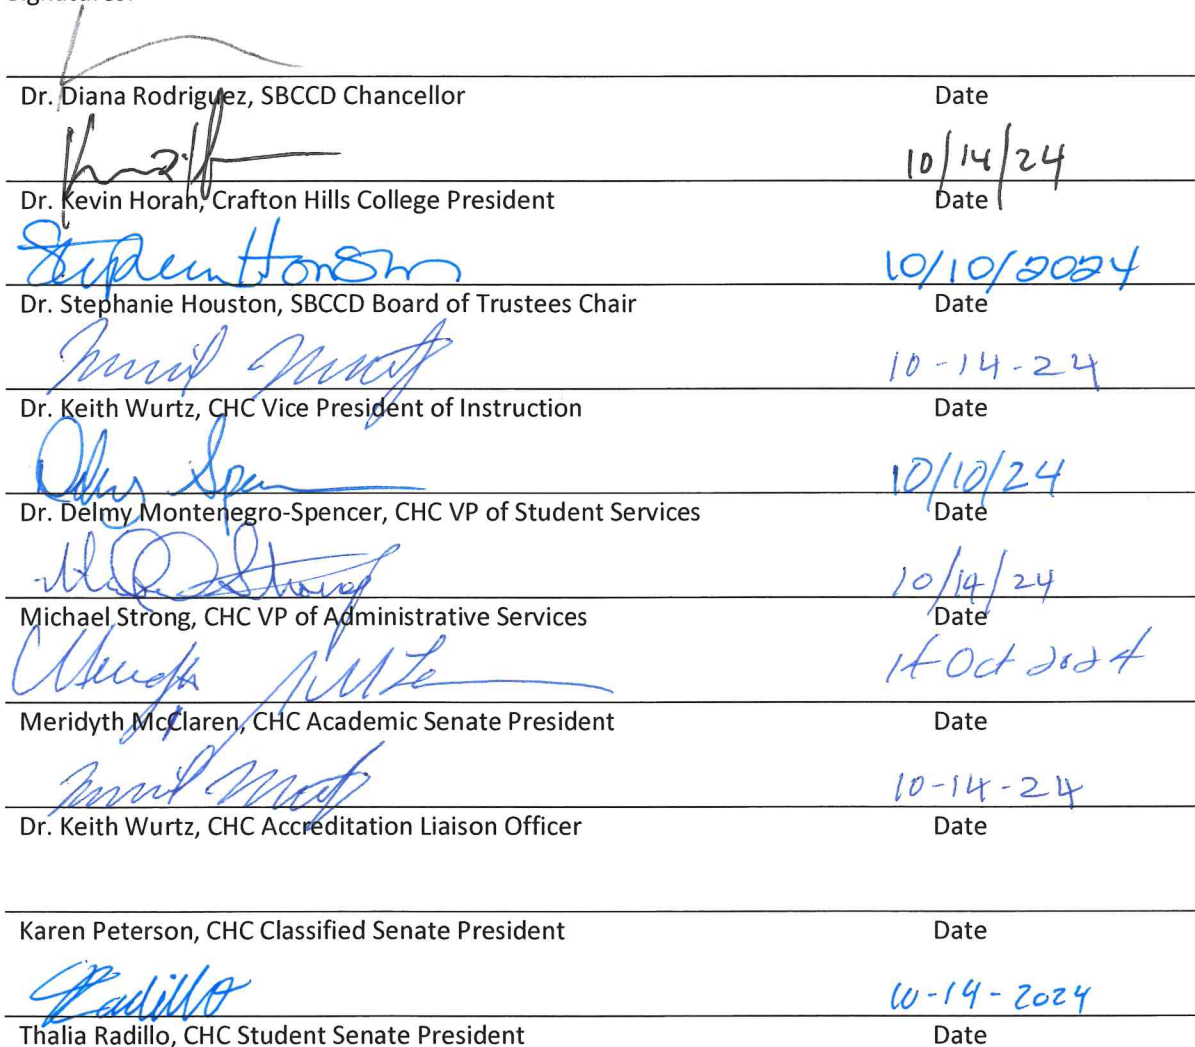 Signatures:
Dr. Diana Rodriguez, SBCCD Chancellor Date
10/14/24
Dr. Kevin Horan, Crafton Hills College President Date
Stephanie Houston 10/10/2024
Dr. Stephanie Houston, SBCCD Board of Trustees Chair Date
10-14-24
Dr. Keith Wurtz, CHC Vice President of Instruction Date
10/10/24
Dr. Delmy Montenegro-Spencer, CHC VP of Student Services Date
Strong 10/14/24
Michael Strong, CHC VP of Administrative Services Date
14 Oct 2024
Meridyth McClaren, CHC Academic Senate President Date
10-14-24
Dr. Keith Wurtz, CHC Accreditation Liaison Officer Date
Karen Peterson, CHC Classified Senate President Date
Radillo 10-14-2024
Thalia Radillo, CHC Student Senate President Date